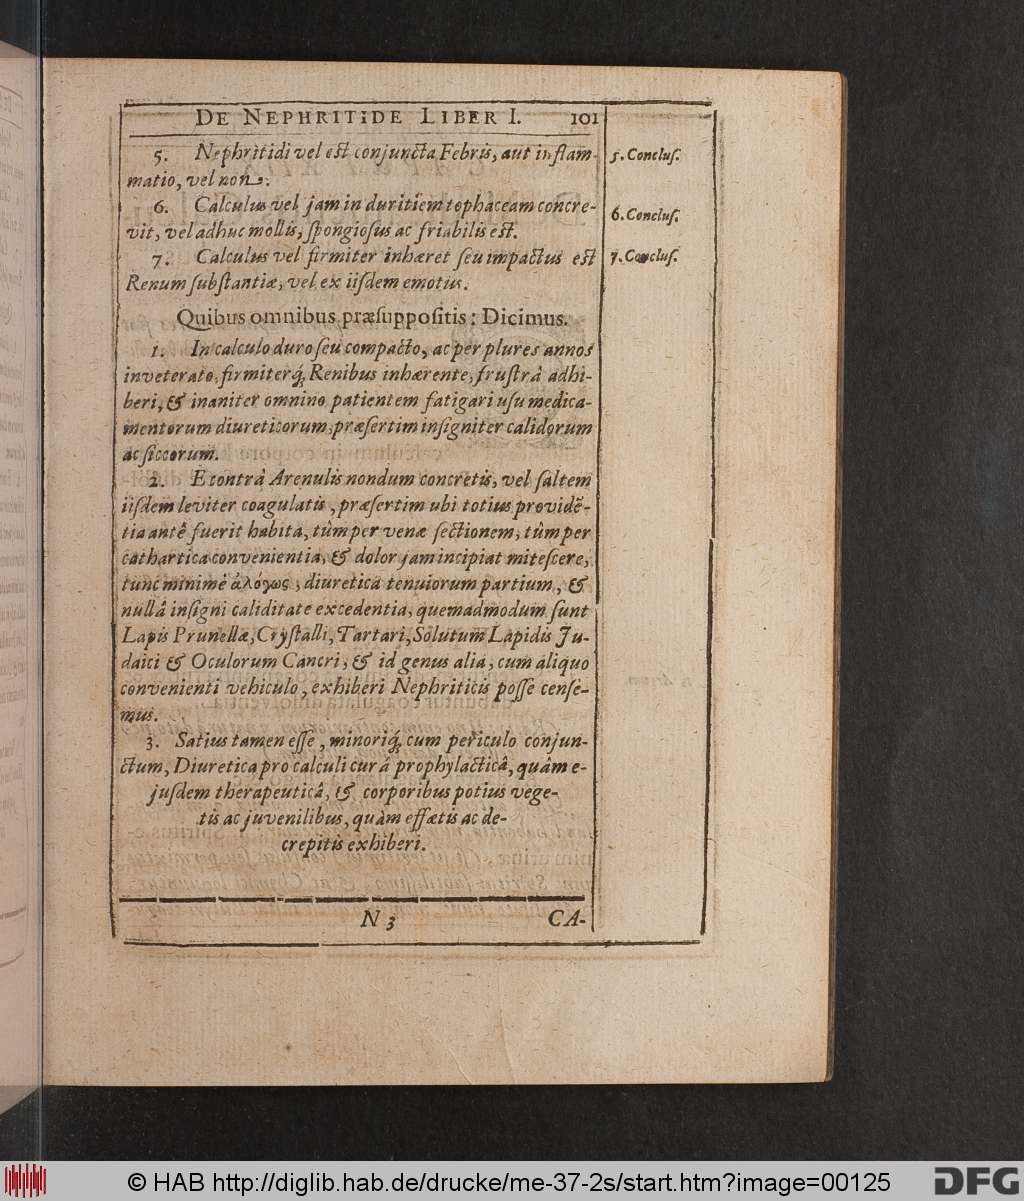 DE NEPHRITIDE LIBER I. 101
5. Nephritidi vel est conjuncta Febris, aut inflam-
matio, vel non.
5. Conclus.
6. Calculus vel jam in duritiem tophaceam concre-
vit, vel adhuc mollis, spongiosus ac friabilis est.
6. Conclus.
7. Calculus vel firmiter inhæret seu impactus est
Renum substantiæ, vel ex iisdem emotus.
7. Conclus.
Quibus omnibus præsuppositis: Dicimus.
1. In calculo duro seu compacto, ac per plures annos
inveterato, firmiterq́; Renibus inhærente, frustrà adhi-
beri, & inaniter omnino patientem fatigari usu medica-
mentorum diureticorum, præsertim insigniter calidorum
ac siccorum.
2. E contrà Arenulis nondum concretis, vel saltem
iisdem leviter coagulatis, præsertim ubi totius providẽ-
tia antè fuerit habita, tùm per venæ sectionem, tùm per
cathartica convenientia, & dolor jam incipiat mitescere,
tunc minimè ἀλόγως, diuretica tenuiorum partium, &
nullâ insigni caliditate excedentia, quemadmodum sunt
Lapis Prunellæ, Crystalli, Tartari, Solutum Lapidis Ju-
daici & Oculorum Cancri, & id genus alia, cum aliquo
convenienti vehiculo, exhiberi Nephriticis posse cense-
mus.
3. Satius tamen esse, minoriq́; cum periculo conjun-
ctum, Diuretica pro calculi curâ prophylacticâ, quàm e-
jusdem therapeuticâ, & corporibus potius vege-
tis ac juvenilibus, quàm effætis ac de-
crepitis exhiberi.
N 3 CA-
© HAB http://diglib.hab.de/drucke/me-37-2s/start.htm?image=00125
DFG